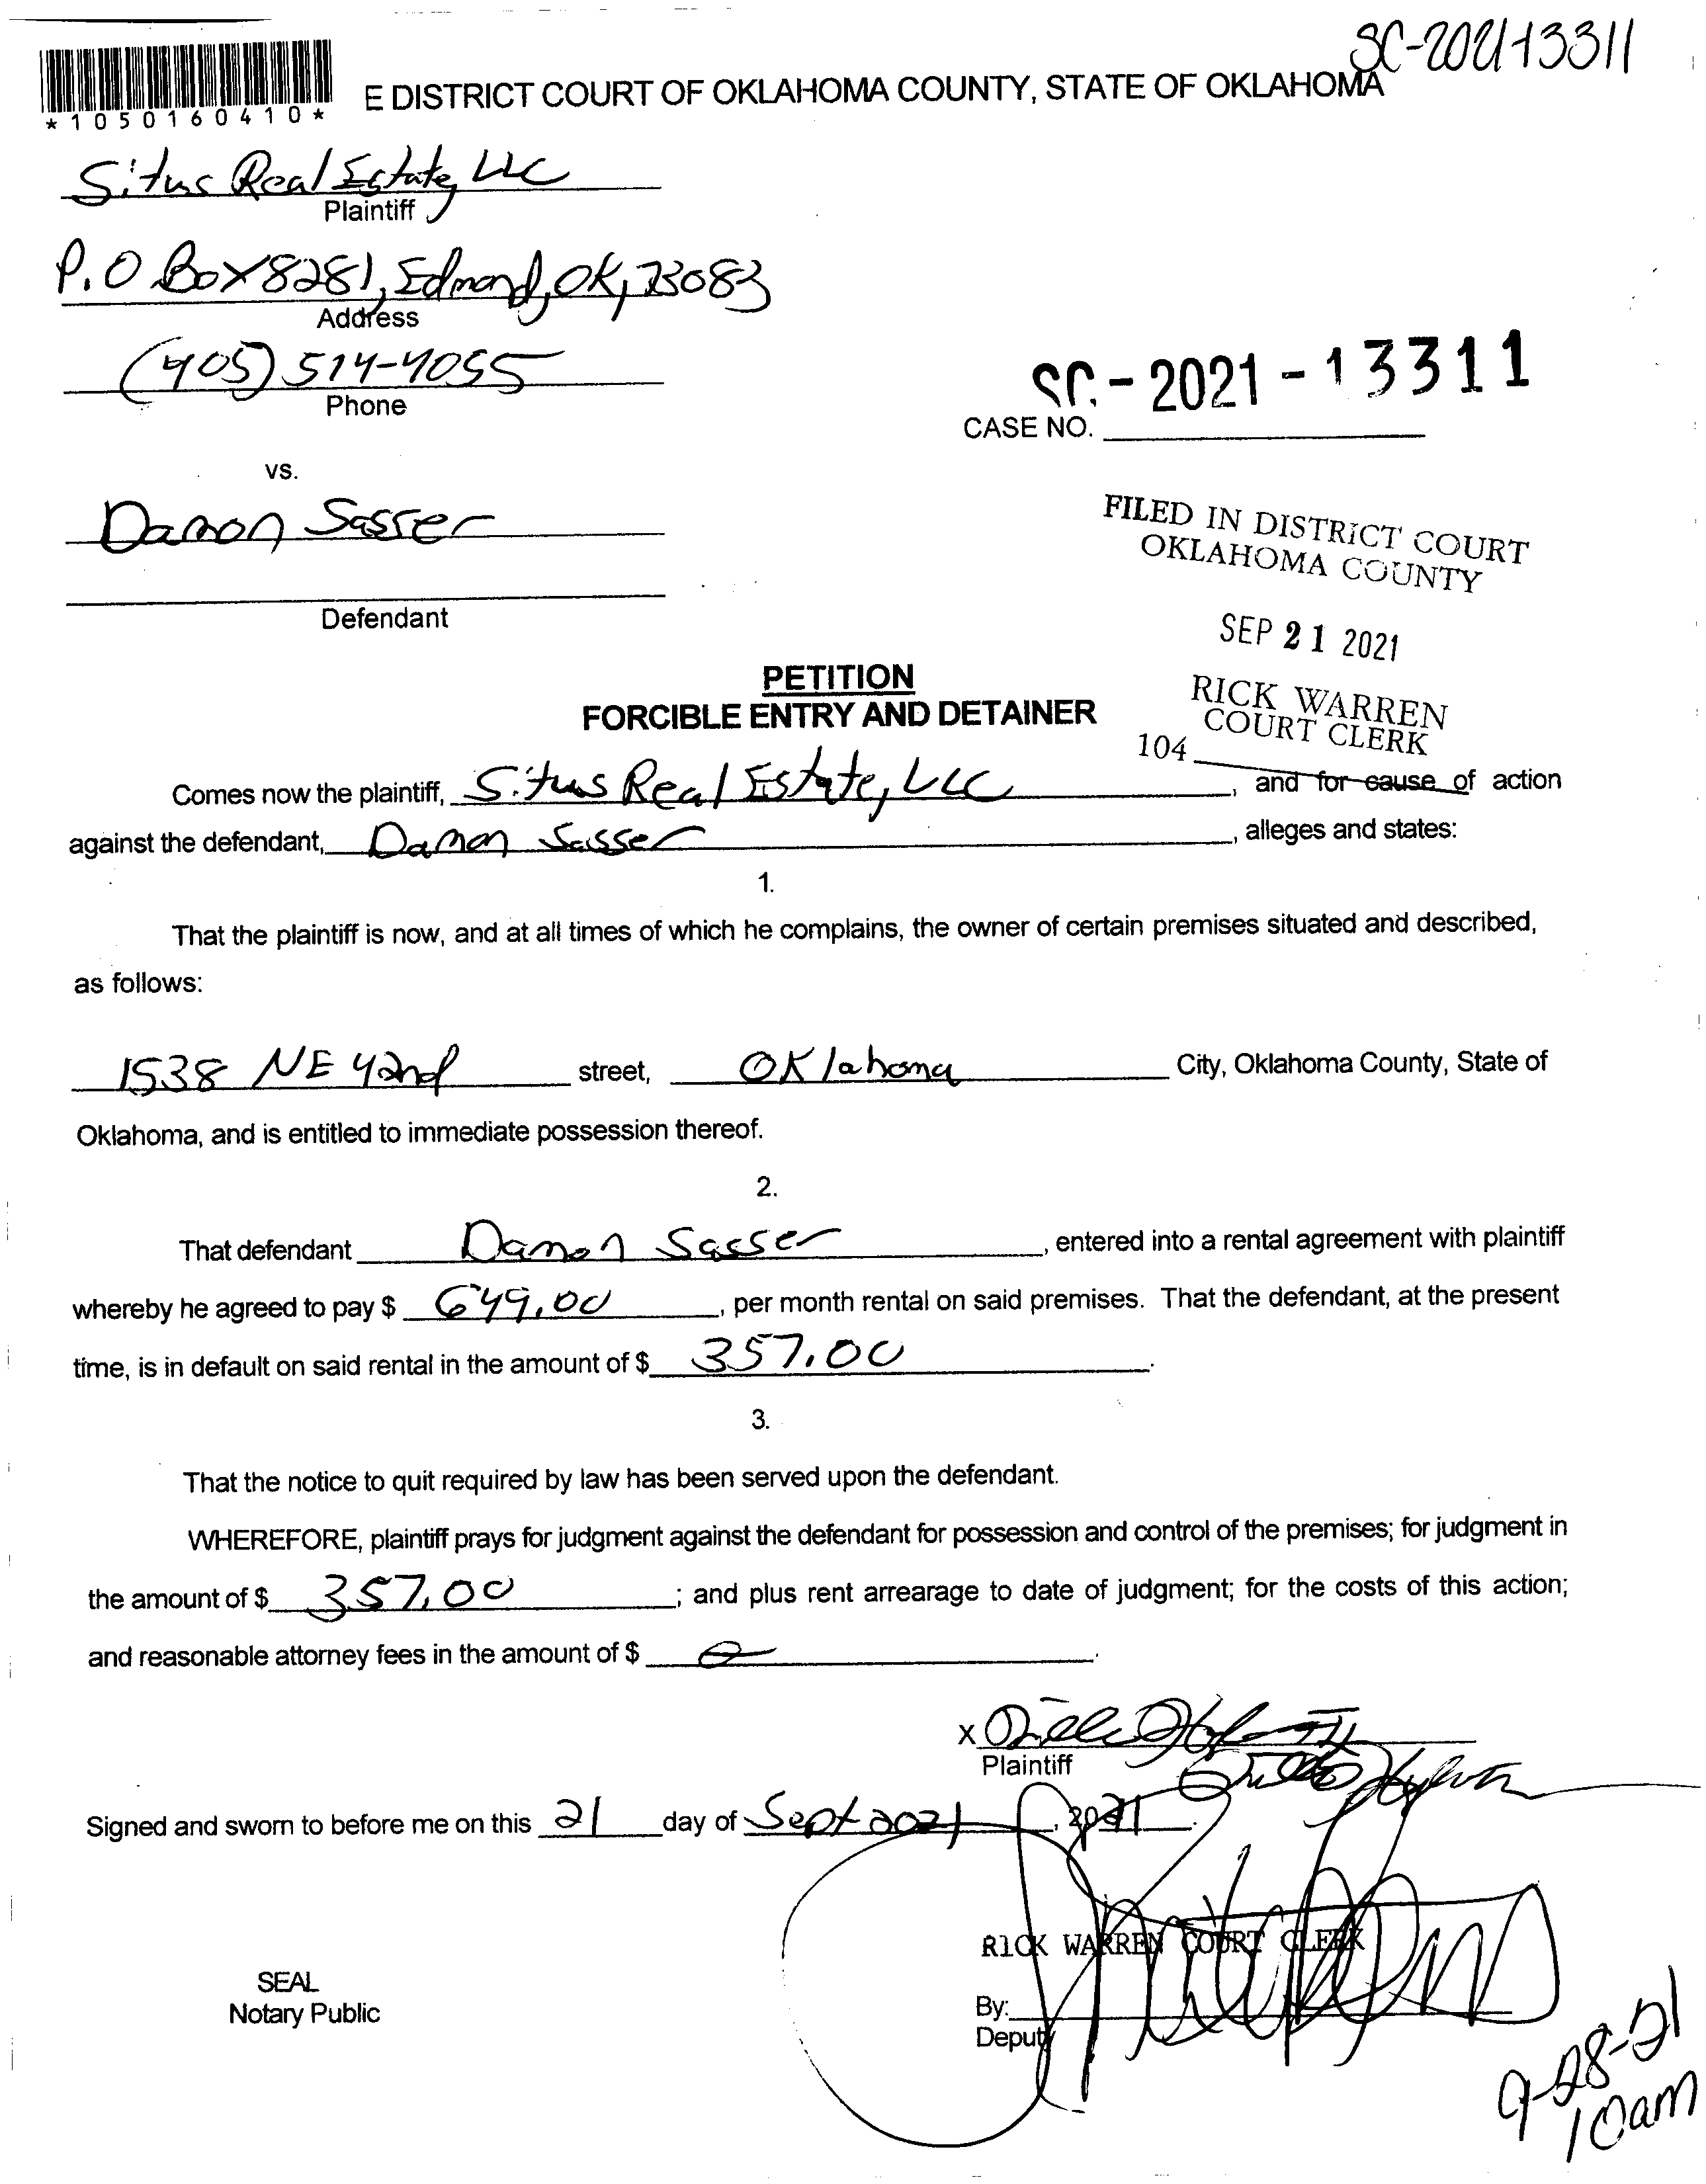 SC-2021-13311
*1050160410*
E DISTRICT COURT OF OKLAHOMA COUNTY, STATE OF OKLAHOMA
Situs Real Estate, LLC
Plaintiff
P.O Box 8281, Edmond, OK, 73083
Address
(405) 514-4055
Phone
SC-2021-13311
CASE NO.
vs.
Damon Sasser
Defendant
FILED IN DISTRICT COURT
OKLAHOMA COUNTY
SEP 21 2021
RICK WARREN
COURT CLERK
104
PETITION
FORCIBLE ENTRY AND DETAINER
Comes now the plaintiff, Situs Real Estate, LLC, and for cause of action
against the defendant, Damon Sasser, alleges and states:
1.
That the plaintiff is now, and at all times of which he complains, the owner of certain premises situated and described,
as follows:
1538 NE 42nd street, Oklahoma City, Oklahoma County, State of
Oklahoma, and is entitled to immediate possession thereof.
2.
That defendant Damon Sasser, entered into a rental agreement with plaintiff
whereby he agreed to pay $ 649.00, per month rental on said premises. That the defendant, at the present
time, is in default on said rental in the amount of $ 357.00.
3.
That the notice to quit required by law has been served upon the defendant.
WHEREFORE, plaintiff prays for judgment against the defendant for possession and control of the premises; for judgment in
the amount of $ 357.00; and plus rent arrearage to date of judgment; for the costs of this action;
and reasonable attorney fees in the amount of $ 0.
X
Plaintiff
Signed and sworn to before me on this 21 day of Sept 2021, 2021.
RICK WARREN COURT CLERK
SEAL
Notary Public
By:
Deputy
9-28-21
10am